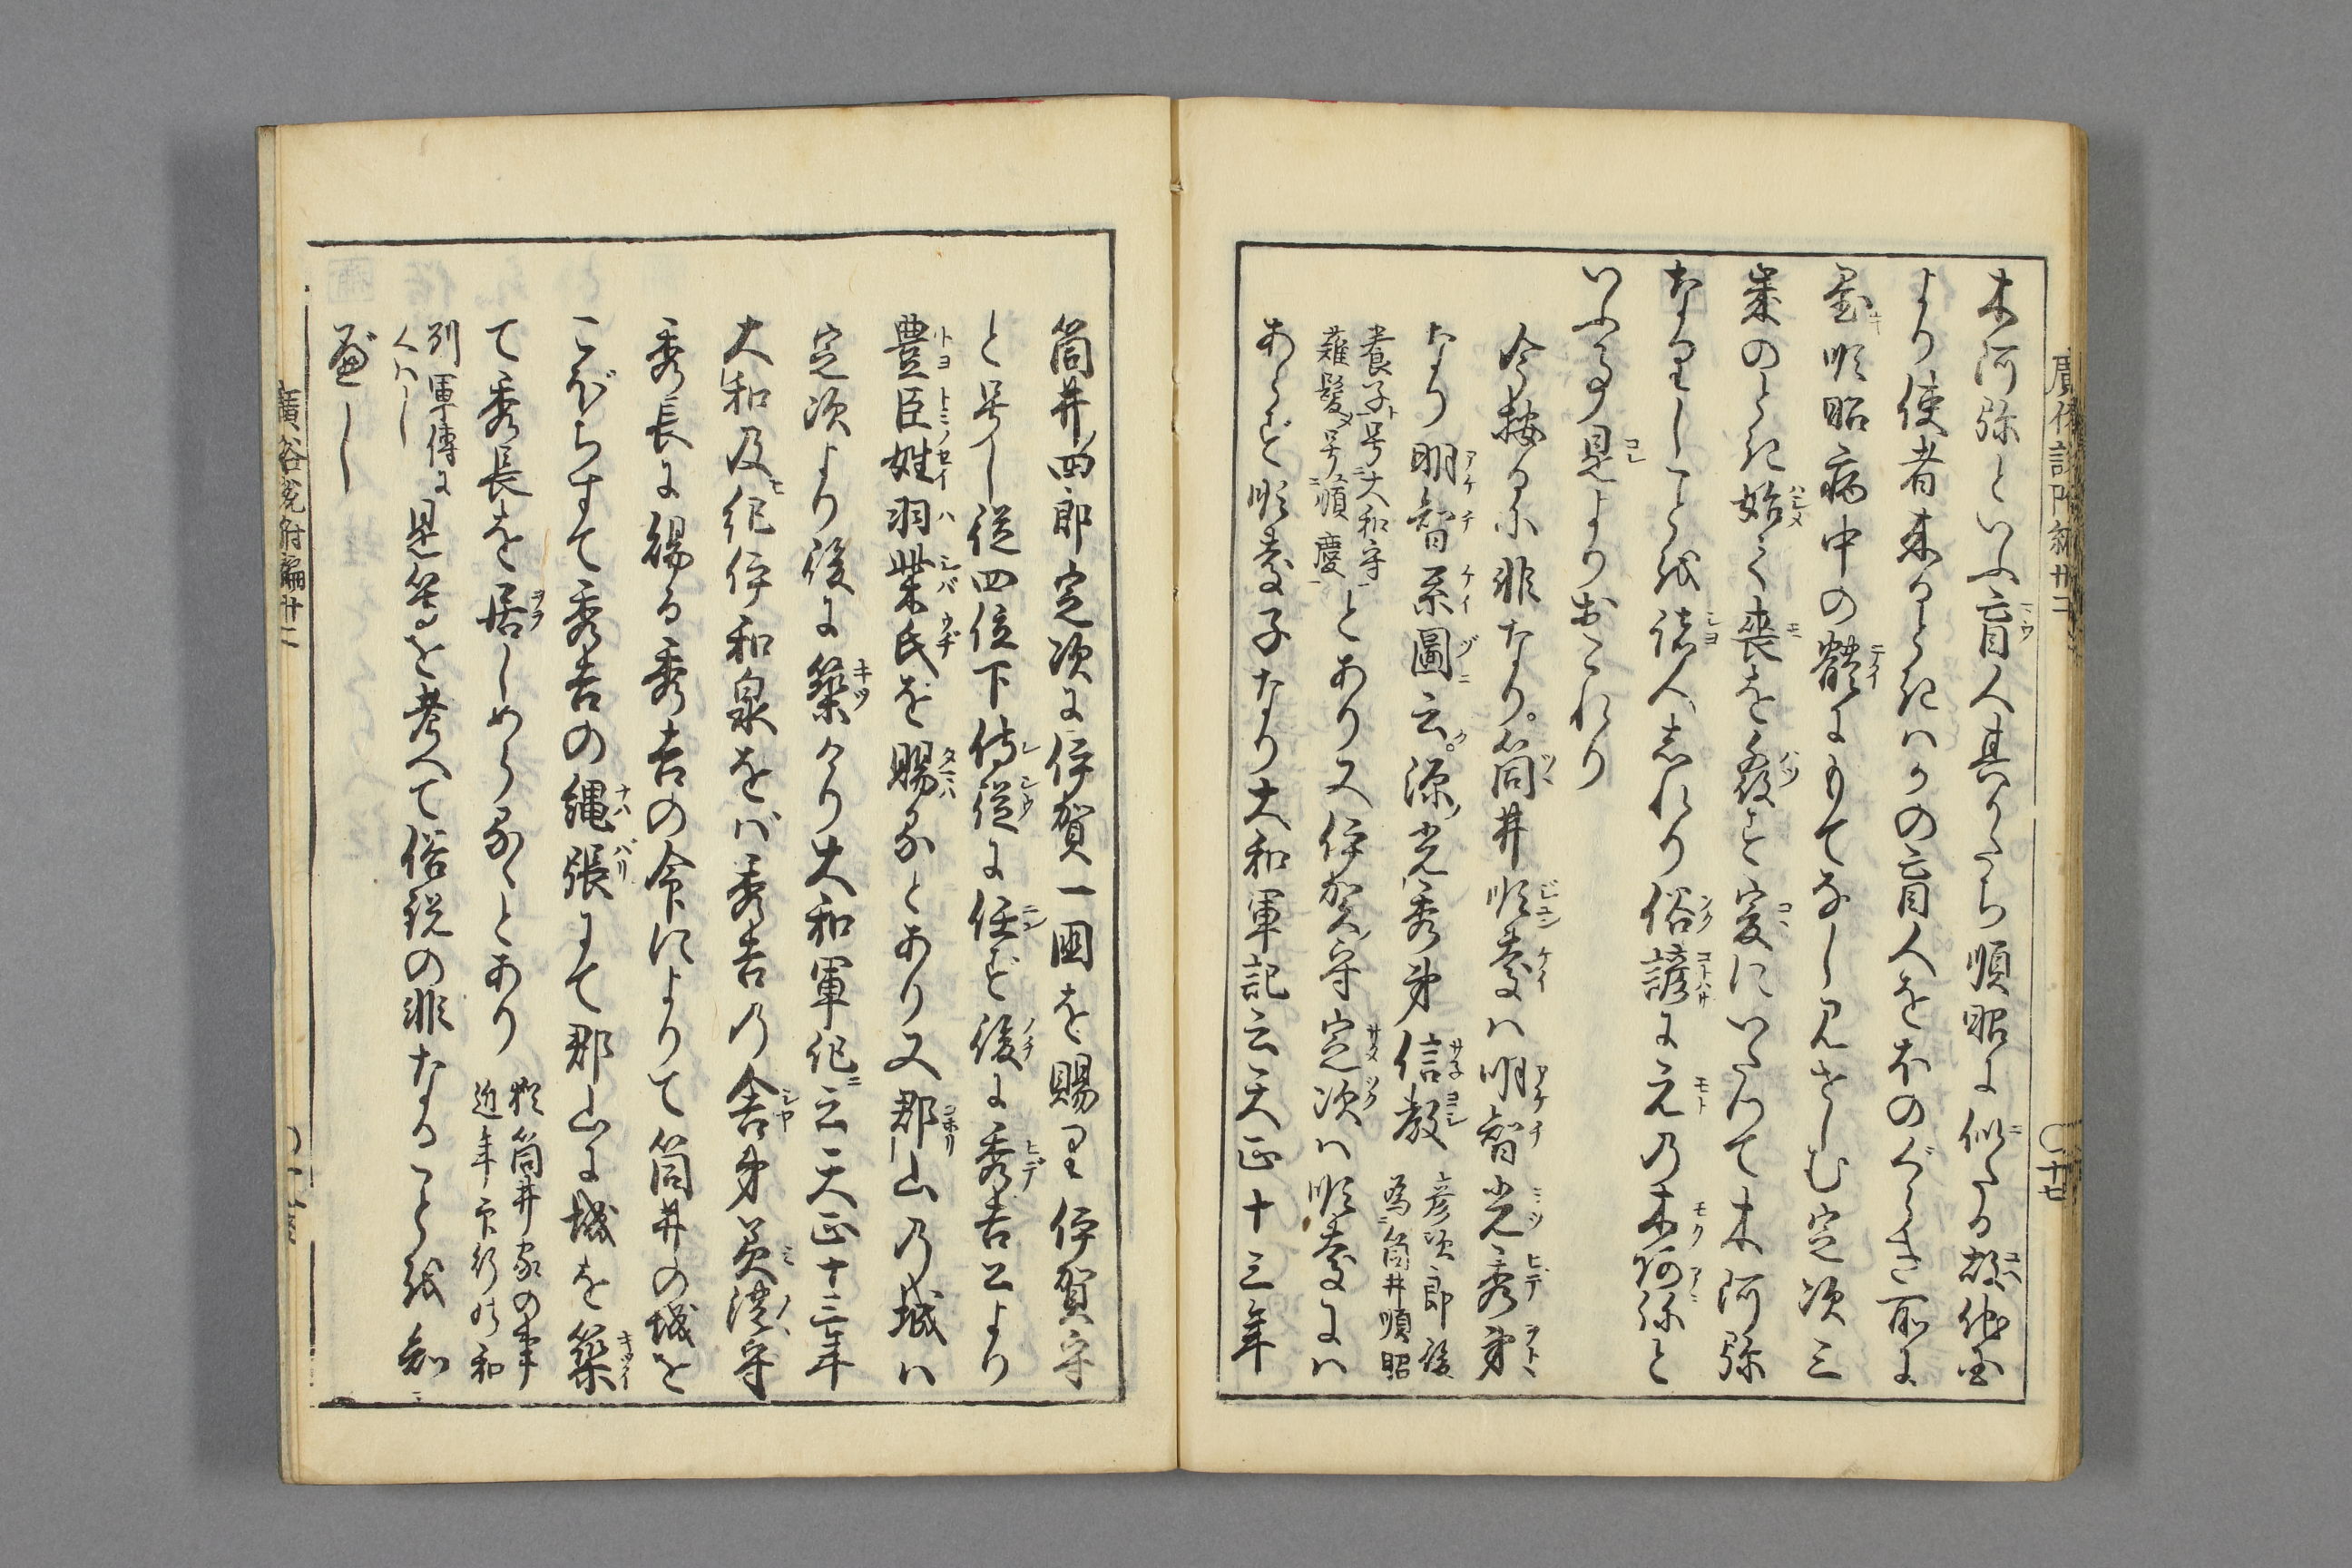 木阿弥といふ盲人其かたち順昭に似たる故他国
より使者来るときハかの盲人をほのぐらき所に
置順昭病中の體にもてなし見せしむ定次三
歳のとき始て喪を發す爰にいたつて木阿弥
なりしことを諸人しれり俗諺に元の木阿弥と
いふ事是よりおこれり
今按るに非なり。筒井順慶ハ明智光秀弟
なり明智系圖云。源光秀弟信教
彦次郎後
為筒井順昭
養子号大和守
薙髪号順慶
とあり又伊賀守定次ハ順慶にハ
あらず順慶子なり大和軍記云天正十三年
廣俗説附編廿二
〇十七
筒井四郎定次に伊賀一国を賜り伊賀守
と号し従四位下侍従に任ず後に秀吉公より
豊臣姓羽柴氏を賜るとあり又郡山の城ハ
定次より後に築けり大和軍記云天正十三年
大和及紀伊和泉をバ秀吉の舎弟美濃守
秀長に賜る秀吉の命によりて筒井の城を
こぼちすて秀吉の縄張にて郡山に城を築
て秀長を居しめらるゝとあり
猶筒井家の事
近年印行の和
列軍傳に
くハし
是等を考へて俗説の非なることを知
べし
廣俗説附編廿二